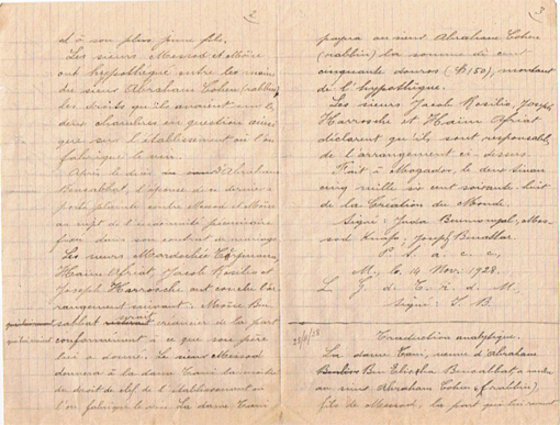 2
et à son plus jeune fils.
Les sieurs Messod et Moïse
ont hypothéqué entre les mains
du sieur Abraham Cohen (rabbin)
les droits qu'ils avaient sur les
deux chambres en question ainsi
que sur l'établissement où l'on
fabrique le vin.
Après le décès d'Abraham
Bensabbat, l'épouse de ce dernier a
porté plainte contre Messod et Moïse
au sujet de l'indemnité pécuniaire
fixée dans son contrat de mariage
Les sieurs Mordechée
Haim Afriat, Jacob Rosilio et
Joseph Harrosche ont conclu l'ar-
rangement suivant: Moïse Ben
sabbat serait créancier de la part
conformément à ce que son père
lui a donné. Le sieur Messod
donnera à la dame Tami la moitié
du droit de clef de l'établissement où
l'on fabrique le vin. La dame Tami
3
payera au sieur Abraham Cohen
(rabbin) la somme de cent
cinquante douros (150), montant
de l'hypothèque.
Les sieurs Jacob Rosilio, Joseph
Harrosche et Haim Afriat
déclarent qu'ils sont responsables
de l'arrangement ci-dessus.
Fait à Mogador, le deux Sivan
cinq mille six cent soixante huit
de la Création du Monde.
Signé: Juda Mes-
sod Knafo, Joseph
P. t. a. c. c.
M., le 14 Nov. 1928.
L. J. d. T. r. d. M.
Signé: I. B.
Traduction analytique.
La dame Tami, veuve d'Abraham
Ben Elisha Bensabbat a vendu
au sieur Abraham Cohen (rabbin)
fils de Messod, la part qui lui revient